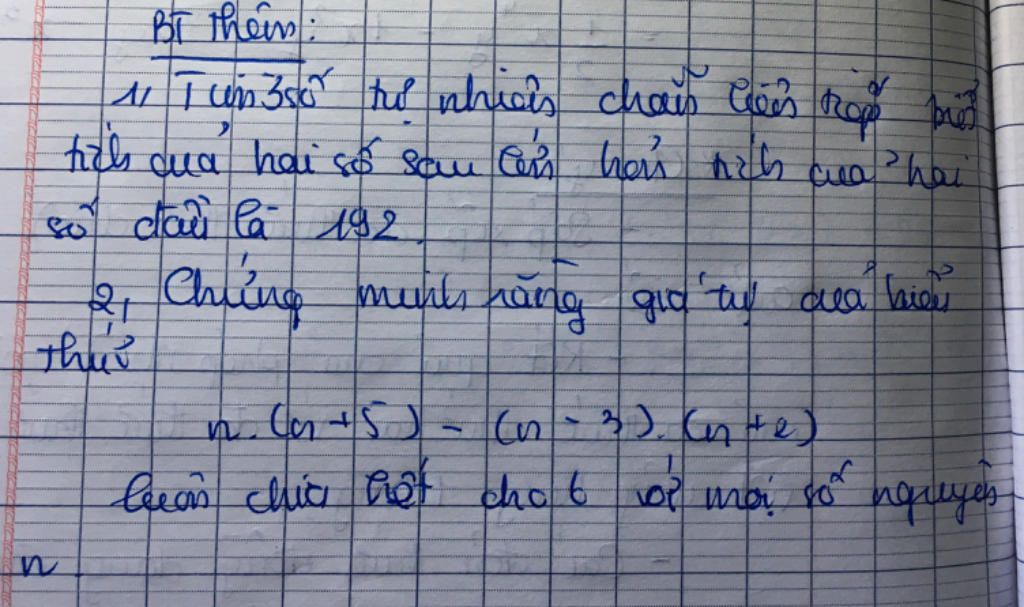 BT thêm:
1, Tìm 3 số tự nhiên chẵn liên tiếp biết
tích của hai số sau lớn hơn tích của hai
số đầu là 192.
2, Chứng minh rằng giá trị của biểu
thức
n.(n+5) - (n-3).(n+2)
luôn chia hết cho 6 với mọi số nguyên
n.